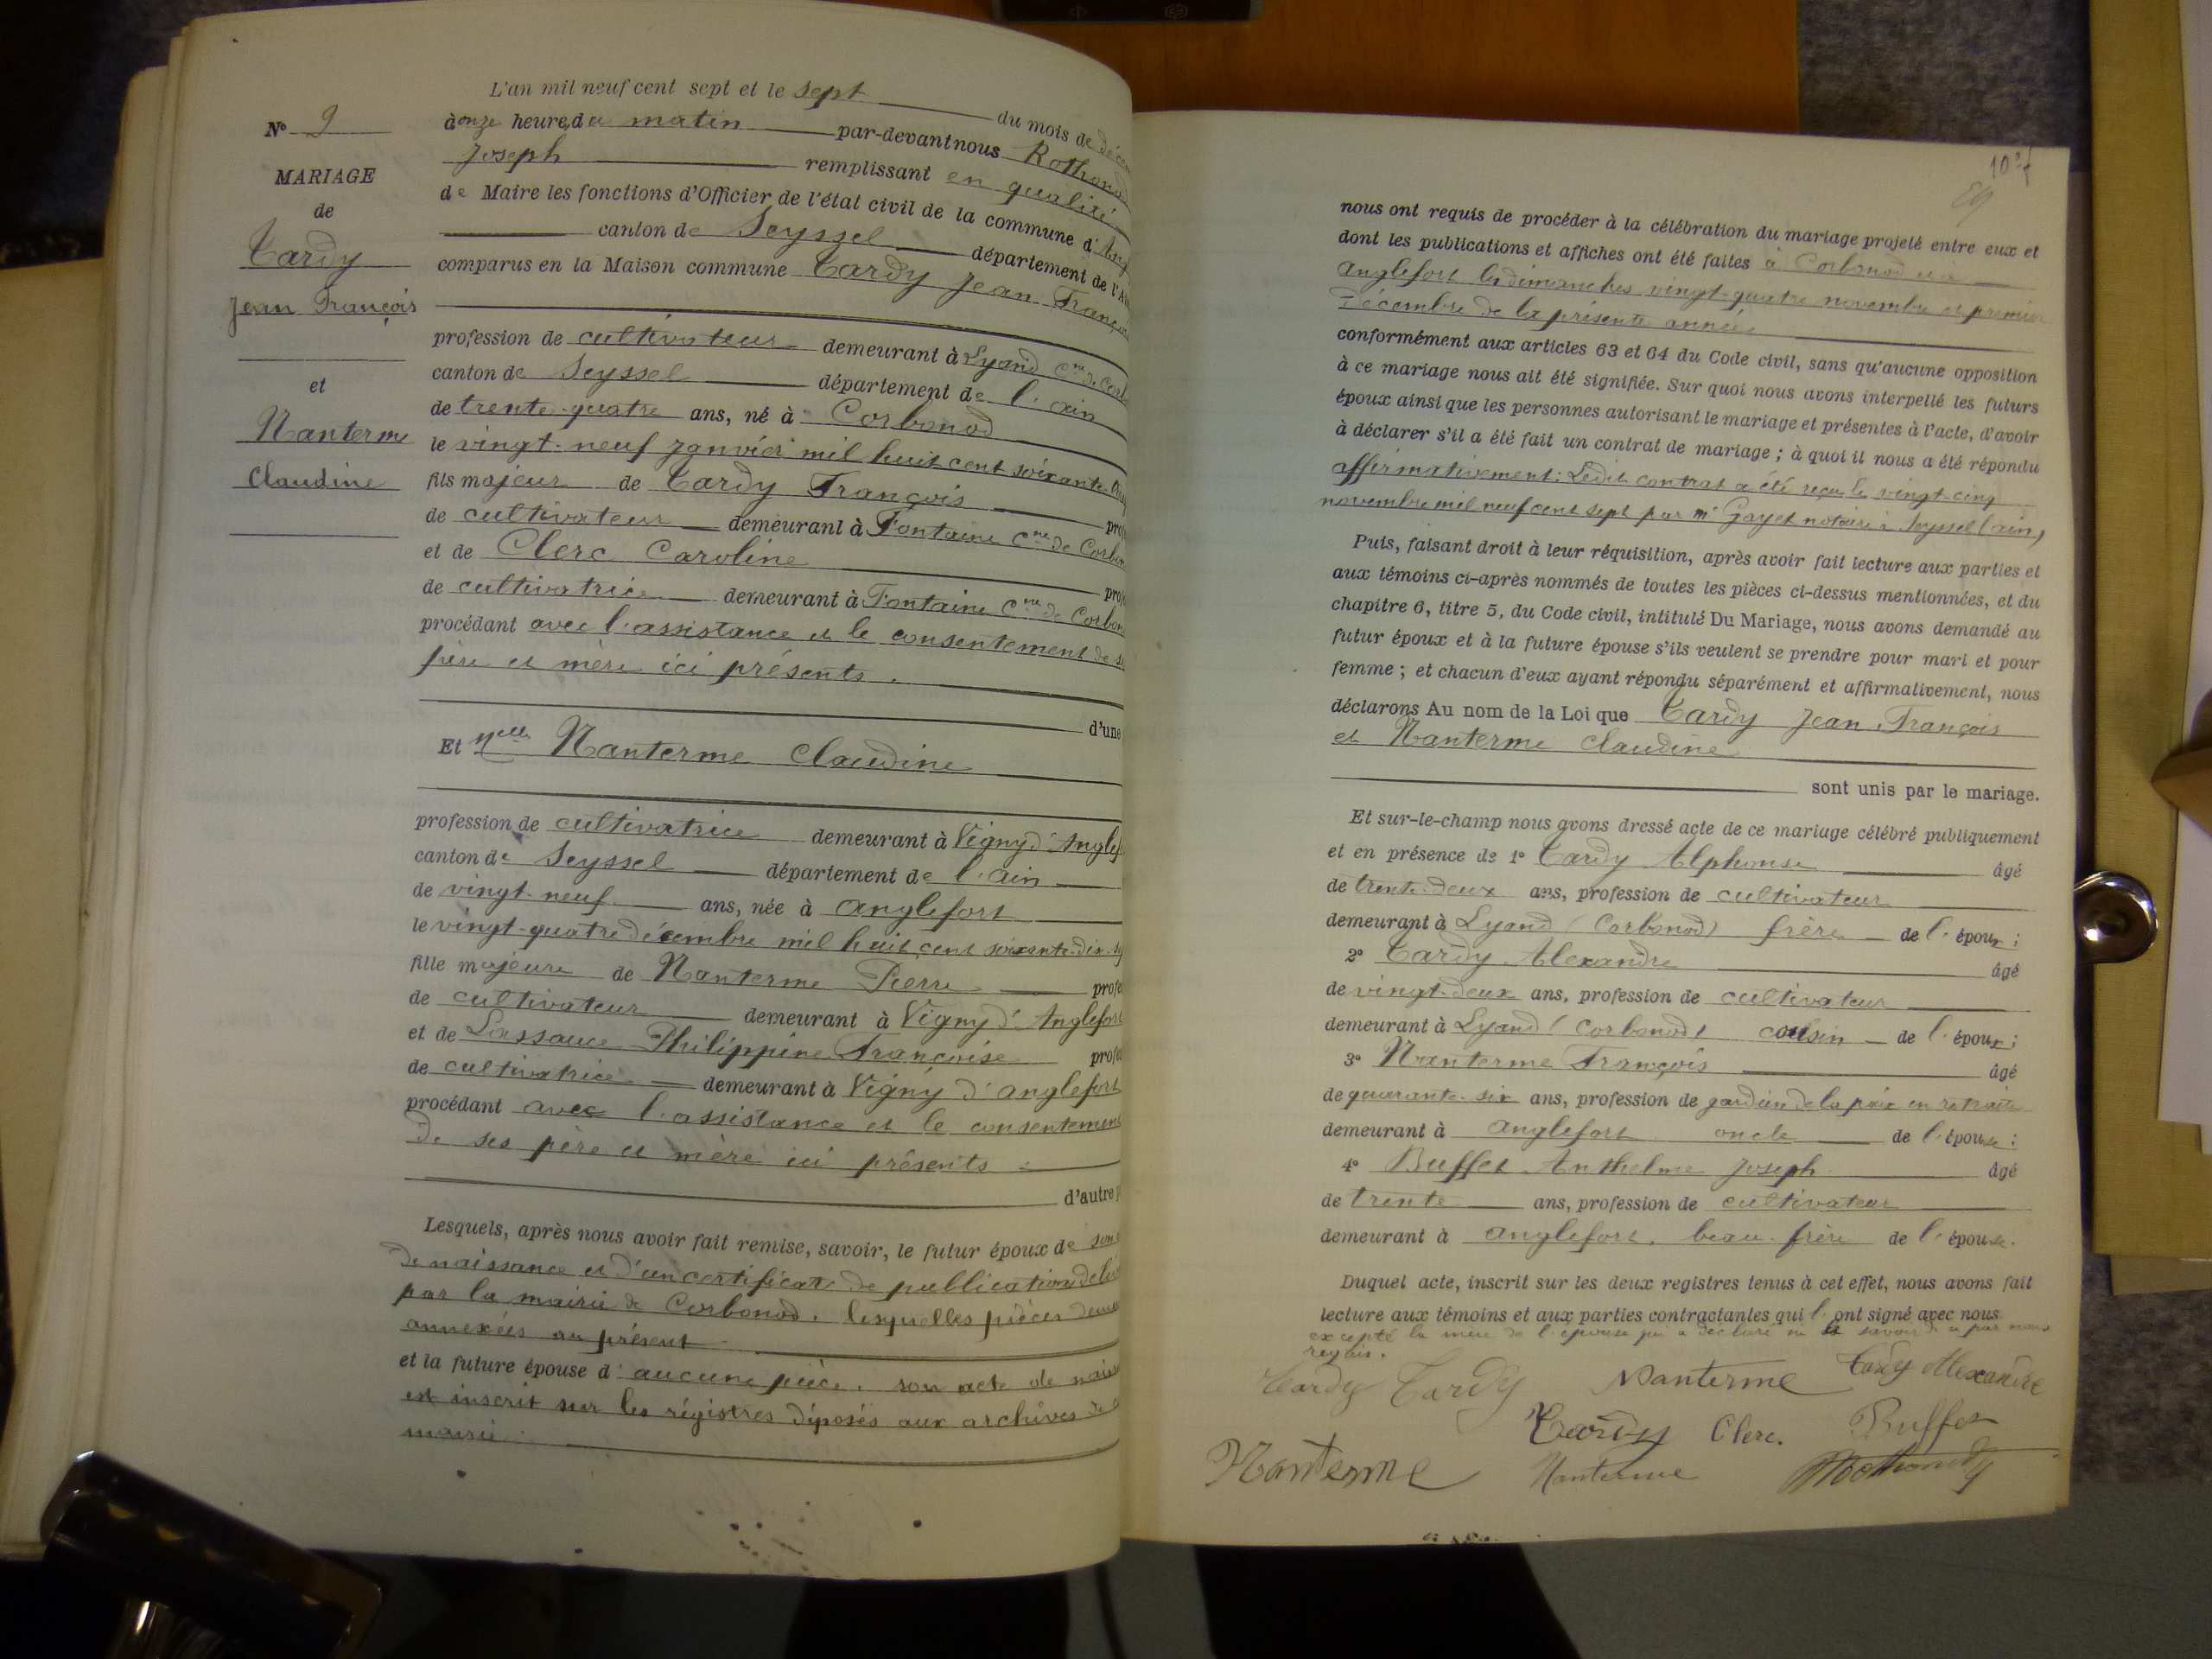 L'an mil neuf cent sept et le sept du mois de
N° 9
à onze heures du matin par-devant nous
Joseph remplissant en qualité
MARIAGE
de Maire les fonctions d'Officier de l'état civil de la commune d'
de
canton de Seyssel département de
Tardy
comparus en la Maison commune Tardy Jean
Jean François
profession de cultivateur demeurant à Lyand Cne de
et
canton de Seyssel département de l'ain
de trente-quatre ans, né à Corbonod
Nanterme
le vingt-neuf janvier mil huit cent soixante
Claudine
fils majeur de Tardy François
de cultivateur demeurant à Fontaine Cne de
et de Clerc Caroline
de cultivatrice demeurant à Fontaine Cne de
procédant avec l'assistance et le consentement de
père et mère ici présents.
d'une
Et Melle Nanterme Claudine
profession de cultivatrice demeurant à Vigny d'
canton de Seyssel département de l'ain
de vingt-neuf ans, née à anglefort
le vingt-quatre décembre mil huit cent soixante-dix
fille majeure de Nanterme Pierre
de cultivateur demeurant à Vigny d'Anglefort
et de Lassauce Philippine Françoise
de cultivatrice demeurant à Vigny d'anglefort
procédant avec l'assistance et le consentement
de ses père et mère ici présents
d'autre
Lesquels, après nous avoir fait remise, savoir, le futur époux de son
de naissance et d'un certificat de publication
par la mairie de Corbonod. lesquelles pièces
annexées au présent
et la future épouse d'aucune pièce. son acte de
est inscrit sur les régistres déposés aux archives de
mairie.
nous ont requis de procéder à la célébration du mariage projeté entre eux et
dont les publications et affiches ont été faites à Corbonod et à
anglefort les dimanches vingt-quatre novembre et premier
décembre de la présente année
conformément aux articles 63 et 64 du Code civil, sans qu'aucune opposition
à ce mariage nous ait été signifiée. Sur quoi nous avons interpellé les futurs
époux ainsi que les personnes autorisant le mariage et présentes à l'acte, d'avoir
à déclarer s'il a été fait un contrat de mariage ; à quoi il nous a été répondu
affirmativement: Ledit contrat a été reçu le vingt-cinq
novembre mil neuf cent sept par Me Gayet notaire à Seyssel (ain)
Puis, faisant droit à leur réquisition, après avoir fait lecture aux parties et
aux témoins ci-après nommés de toutes les pièces ci-dessus mentionnées, et du
chapitre 6, titre 5, du Code civil, intitulé Du Mariage, nous avons demandé au
futur époux et à la future épouse s'ils veulent se prendre pour mari et pour
femme ; et chacun d'eux ayant répondu séparément et affirmativement, nous
déclarons Au nom de la Loi que Tardy Jean François
et Nanterme Claudine
sont unis par le mariage.
Et sur-le-champ nous avons dressé acte de ce mariage célébré publiquement
et en présence de 1° Tardy Alphonse âgé
de trente-deux ans, profession de cultivateur
demeurant à Lyand (Corbonod) frère de l'époux ;
2° Tardy Alexandre âgé
de vingt-deux ans, profession de cultivateur
demeurant à Lyand (Corbonod) cousin de l'époux ;
3° Nanterme François âgé
de quarante-six ans, profession de gardien de la paix en retraite
demeurant à anglefort oncle de l'épouse ;
4° Buffet Anthelme Joseph âgé
de trente ans, profession de cultivateur
demeurant à anglefort. beau-frère de l'épouse.
Duquel acte, inscrit sur les deux registres tenus à cet effet, nous avons fait
lecture aux témoins et aux parties contractantes qui l'ont signé avec nous
excepté la mère de l'épouse qui a déclaré ne le savoir de ce par nous
requis.
Tardy Tardy Nanterme Tardy Alexandre
Tardy Clerc. Buffet
Nanterme Nanterme